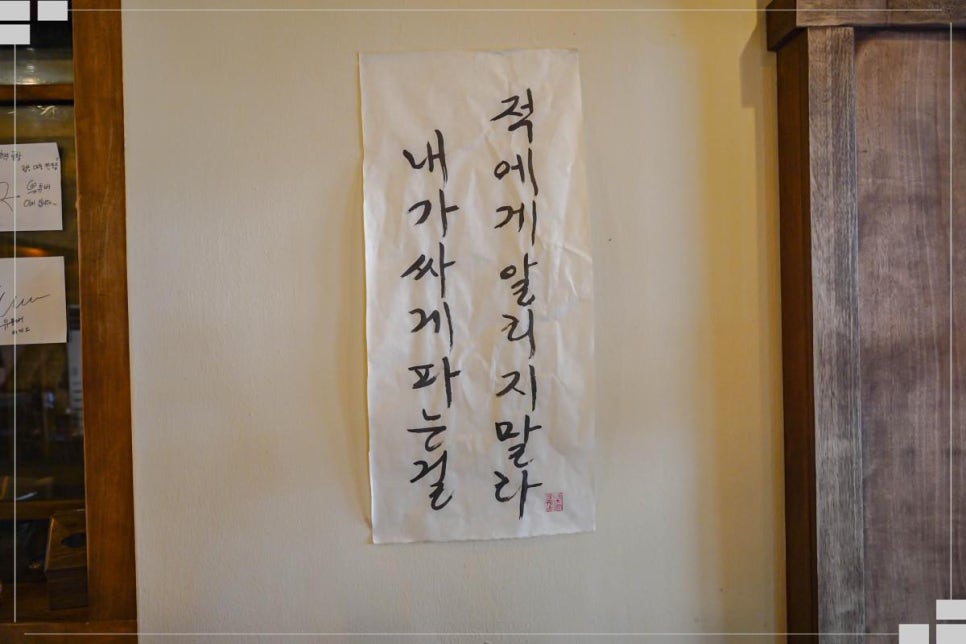 적에게알리지말라
내가싸게파는걸